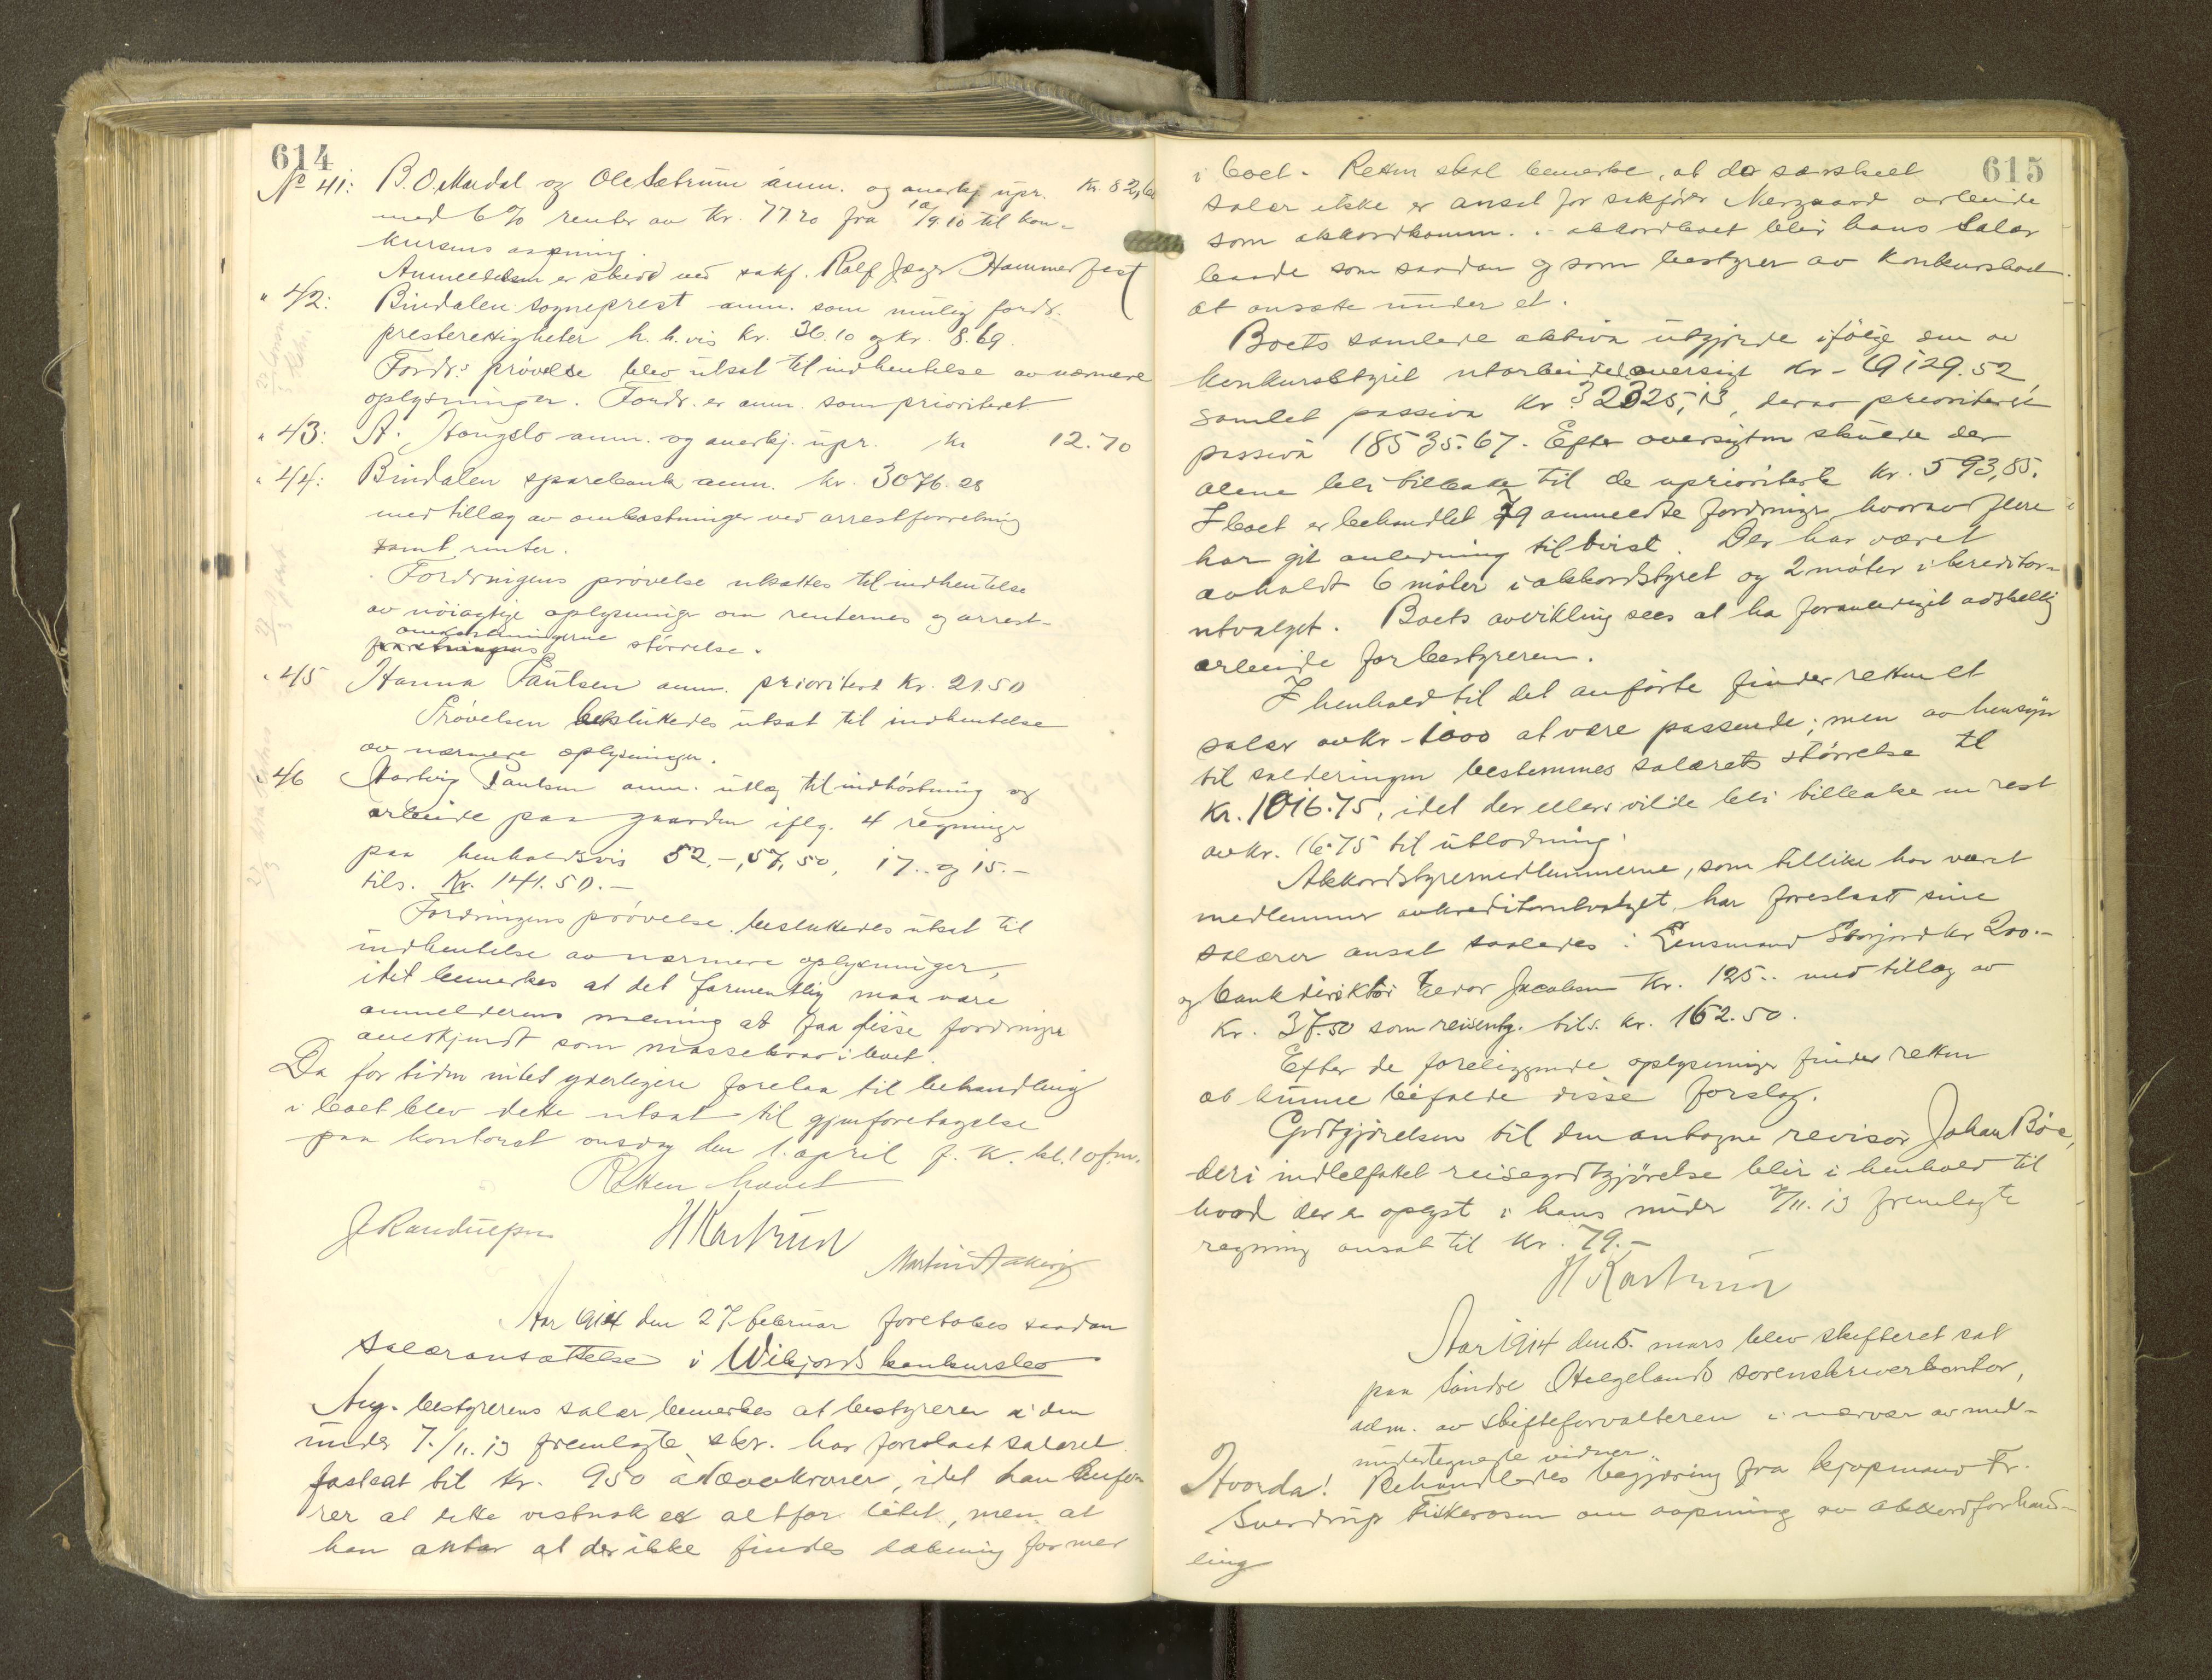 614
No 41: B. O. Mardal og Ole Sætrum anm. og anerkj. upr. Kr. 82,
med 6 % renter av Kr. 77.20 fra 10/9 10 til kon-
kursens aapning.
Anmeldelsen er skedd ved sakf. Rolf Jæger Hammerfest
" 42: Bindalen sogneprest anm. som mulig fordr.
presterettigheter h. h. vis kr. 36.10 og kr. 8.69.
Fordr.s prøvelse blev utsat til indhentelse av nærmere
oplysninger. Fordr. er anm. som prioritert
" 43: A. Hongslo anm. og anerkj. upr. Kr 12.70
" 44: Bindalen sparebank anm. kr. 3076.28
med tillæg av omkostninger ved arrestforretning
samt renter.
Fordringens prøvelse utsattes til indhentelse
av nøiagtige oplysninger om renternes og arrest-
omkostningerne
forretningens størrelse.
" 45 Hanna Paulsen anm. prioritert Kr. 21.50
Prøvelsen besluttedes utsat til indhentelse
av nærmere oplysninger.
" 46 Hartvig Paulsen anm. utlæg til indhøstning og
arbeide paa gaarden iflg. 4 regninger
paa henholdsvis 52.-, 57,50, 17.- og 15.-
tils. Kr. 141.50.-
Fordringens prøvelse besluttedes utsat til
indhentelse av nærmere oplysninger,
idet bemerkes at det formentlig maa være
anmelderens mening at faa disse fordringer
anerkjendt som massekrav i boet.
Da for tiden intet yderligere forelaa til behandling
i boet blev dette utsat til gjenforetagelse
paa kontoret onsdag den 1. april f. k. kl. 10 fm.
Retten hævet
H Kastrud
Martin
Aar 1914 den 27. februar foretokes saadan
Salæransættelse i Wikjords konkursbo
Ang. bestyrerens salær bemerkes at bestyreren i den
under 7./11. 13 fremlagte skr. har foreslaat salæret
fastsat til kr. 950 à 1000 kroner, idet han anfø-
rer at dette vistnok er altfor litet, men at
han antar at der ikke findes dækning for mer
615
i boet. Retten skal bemerke, at da særskilt
salær ikke er ansat for sakfører Nergaard arbeide
som akkordkomm. i akkordboet blir hans salær
baade som saadan og som bestyrer av konkursboet
at ansætte under et.
Boets samlede aktiva utgjorde ifølge den av
konkursstyret utarbeidede oversigt Kr. 19129.52,
samlet passiva kr. 32325,13, derav prioriterte
passiva 18535.67. Efter oversigten skulde der
alene bli tilbake til de uprioriterte kr. 593,85.
I boet er behandlet 79 anmeldte fordringer hvorav flere
har git anledning til tvist. Der har været
avholdt 6 møter i akkordstyret og 2 møter i kreditor-
utvalget. Boets avvikling sees at ha foranlediget adskillig
arbeide for bestyreren.
I henhold til det anførte finder retten et
salær av kr. 1000 at være passende; men av hensyn
til salderingen bestemmes salærets størrelse til
Kr. 1016.75, idet der ellers vilde bli tilbake en rest
av kr. 16.75 til utlodning.
Akkordstyremedlemmerne, som tillike har været
medlemmer av kreditorutvalget, har foreslaat sine
salærer ansat saaledes: Lensmand Storjord kr 200.-
og bankdirektør Jacobsen Kr. 125.- med tillæg av
Kr. 37.50 som reiseutg. tils. kr. 162.50.
Efter de foreliggende oplysninger finder retten
at kunne bifalde disse forslag.
Godtgjørelsen til den antagne revisor Johan Bøe,
deri indbefattet reisegodtgjørelse blir i henhold til
hvad der er oplyst i hans under 7/11. 13 fremlagte
regning ansat til Kr. 79.-
H Kastrud
Aar 1914 den 5. mars blev skifteret sat
paa Søndre Helgelands sorenskriverkontor,
adm. av skifteforvalteren i nærvær av med-
undertegnede vidner.
Hvorda! Behandledes begjæring fra kjøpmand Fr.
Sverdrup Fiskerosen om aapning av akkordforhand-
ling